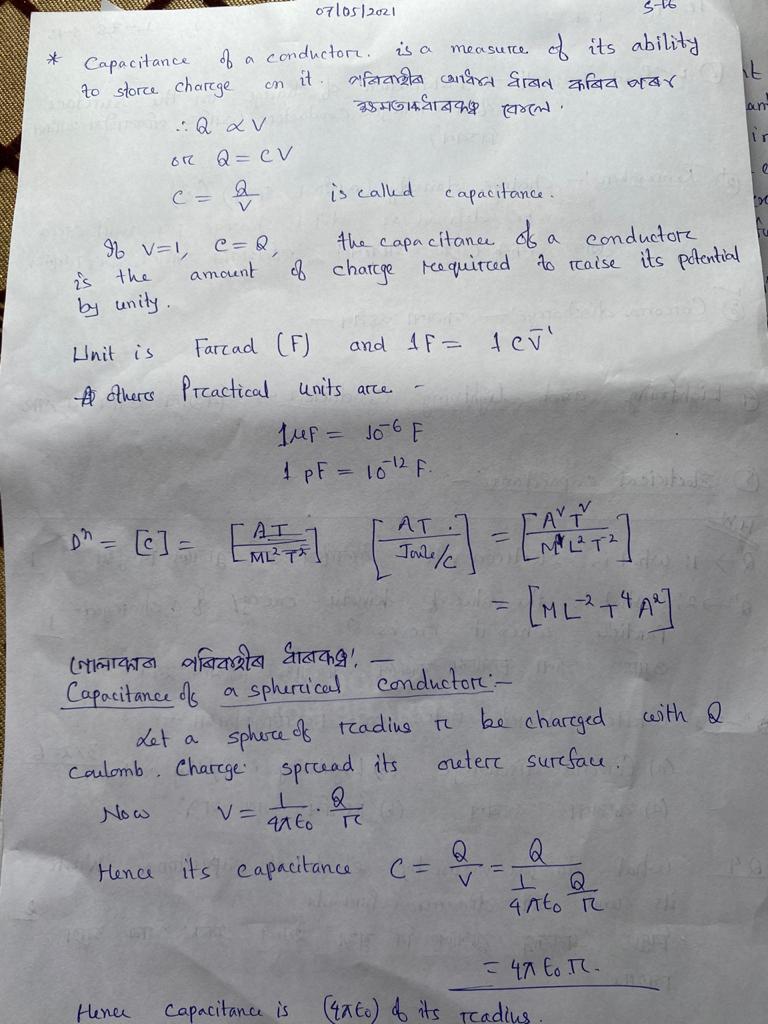 07/05/2021
* Capacitance of a conductor. is a measure of its ability
to store charge on it. পৰিবাহীৰ আধান ধাৰন কৰিব পৰৰ
ক্ষমতাক ধাৰকত্ব বোলে.
∴ Q ∝ V
or Q = CV
C = Q/V is called capacitance.
If V=1, C=Q, the capacitance of a conductor
is the amount of charge required to raise its potential
by unity.
Unit is Farad (F) and 1F = 1 CV⁻¹
Others Practical units are -
1μF = 10⁻⁶ F
1 pF = 10⁻¹² F.
Dⁿ = [C] = [AT/ML²T⁻²] [AT./Joule/C] = [A²T²/ML²T⁻²]
= [ML⁻²T⁴A²]
গোলাকাৰ পৰিবাহীৰ ধাৰকত্ব. —
Capacitance of a spherical conductor:-
Let a sphere of radius r be charged with Q
Coulomb. Charge spread its outer surface.
Now V = 1/4πε₀ · Q/r
Hence its capacitance C = Q/V = Q/(1/4πε₀ Q/r)
= 4πε₀.r.
Hence capacitance is (4πε₀) of its radius.